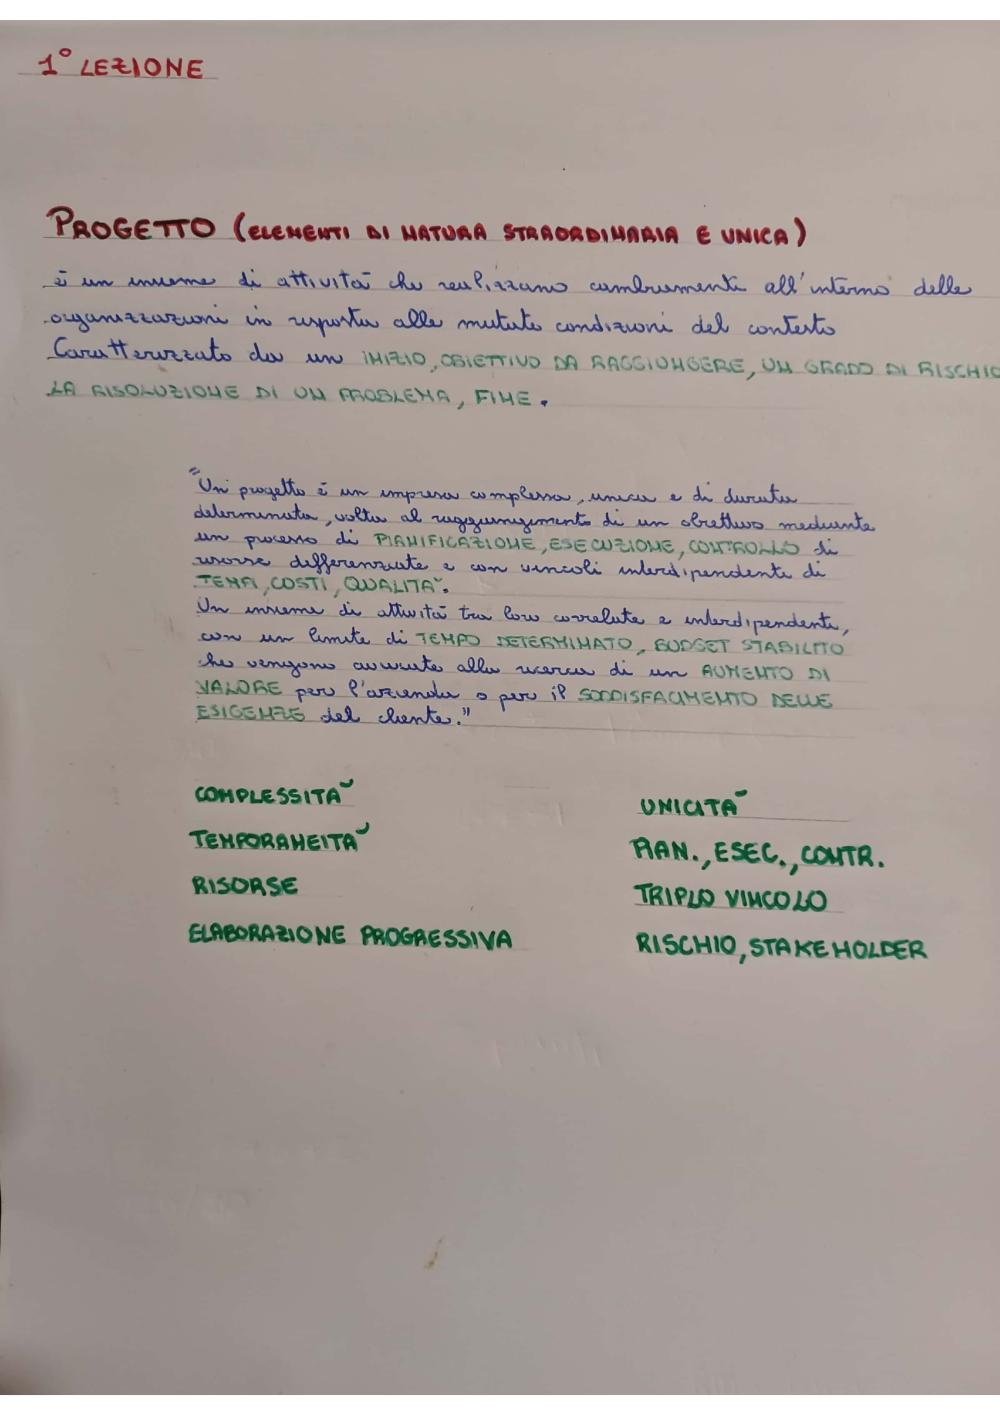 1° LEZIONE
PROGETTO (ELEMENTI DI NATURA STRAORDINARIA E UNICA)
è un insieme di attività che realizzano cambiamenti all'interno delle
organizzazioni in risposta alle mutate condizioni del contesto
Caratterizzato da un INIZIO, OBIETTIVO DA RAGGIUNGERE, UN GRADO DI RISCHIO
LA RISOLUZIONE DI UN PROBLEMA, FINE.
"Un progetto è un impresa complessa, unica e di durata
determinata, volta al raggiungimento di un obiettivo mediante
un processo di PIANIFICAZIONE, ESECUZIONE, CONTROLLO di
risorse differenziate e con vincoli interdipendenti di
TEMPI, COSTI, QUALITÀ.
Un insieme di attività tra loro correlate e interdipendenti,
con un limite di TEMPO DETERMINATO, BUDGET STABILITO
che vengono avviate alla ricerca di un AUMENTO DI
VALORE per l'azienda o per il SODDISFACIMENTO DELLE
ESIGENZE del cliente."
COMPLESSITÀ
UNICITÀ
TEMPORANEITÀ
PIAN., ESEC., CONTR.
RISORSE
TRIPLO VINCOLO
ELABORAZIONE PROGRESSIVA
RISCHIO, STAKEHOLDER